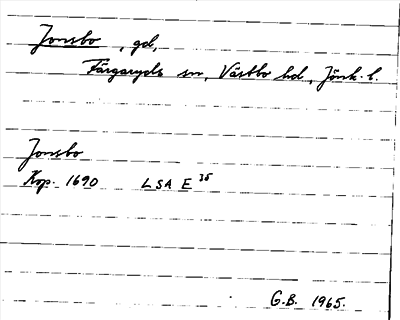 Jonsbo, gd,
Färgaryds sn, Västbo hd, Jönk. l.
Jonsbo
Kop. 1690 LSA E 35
G.B. 1965.